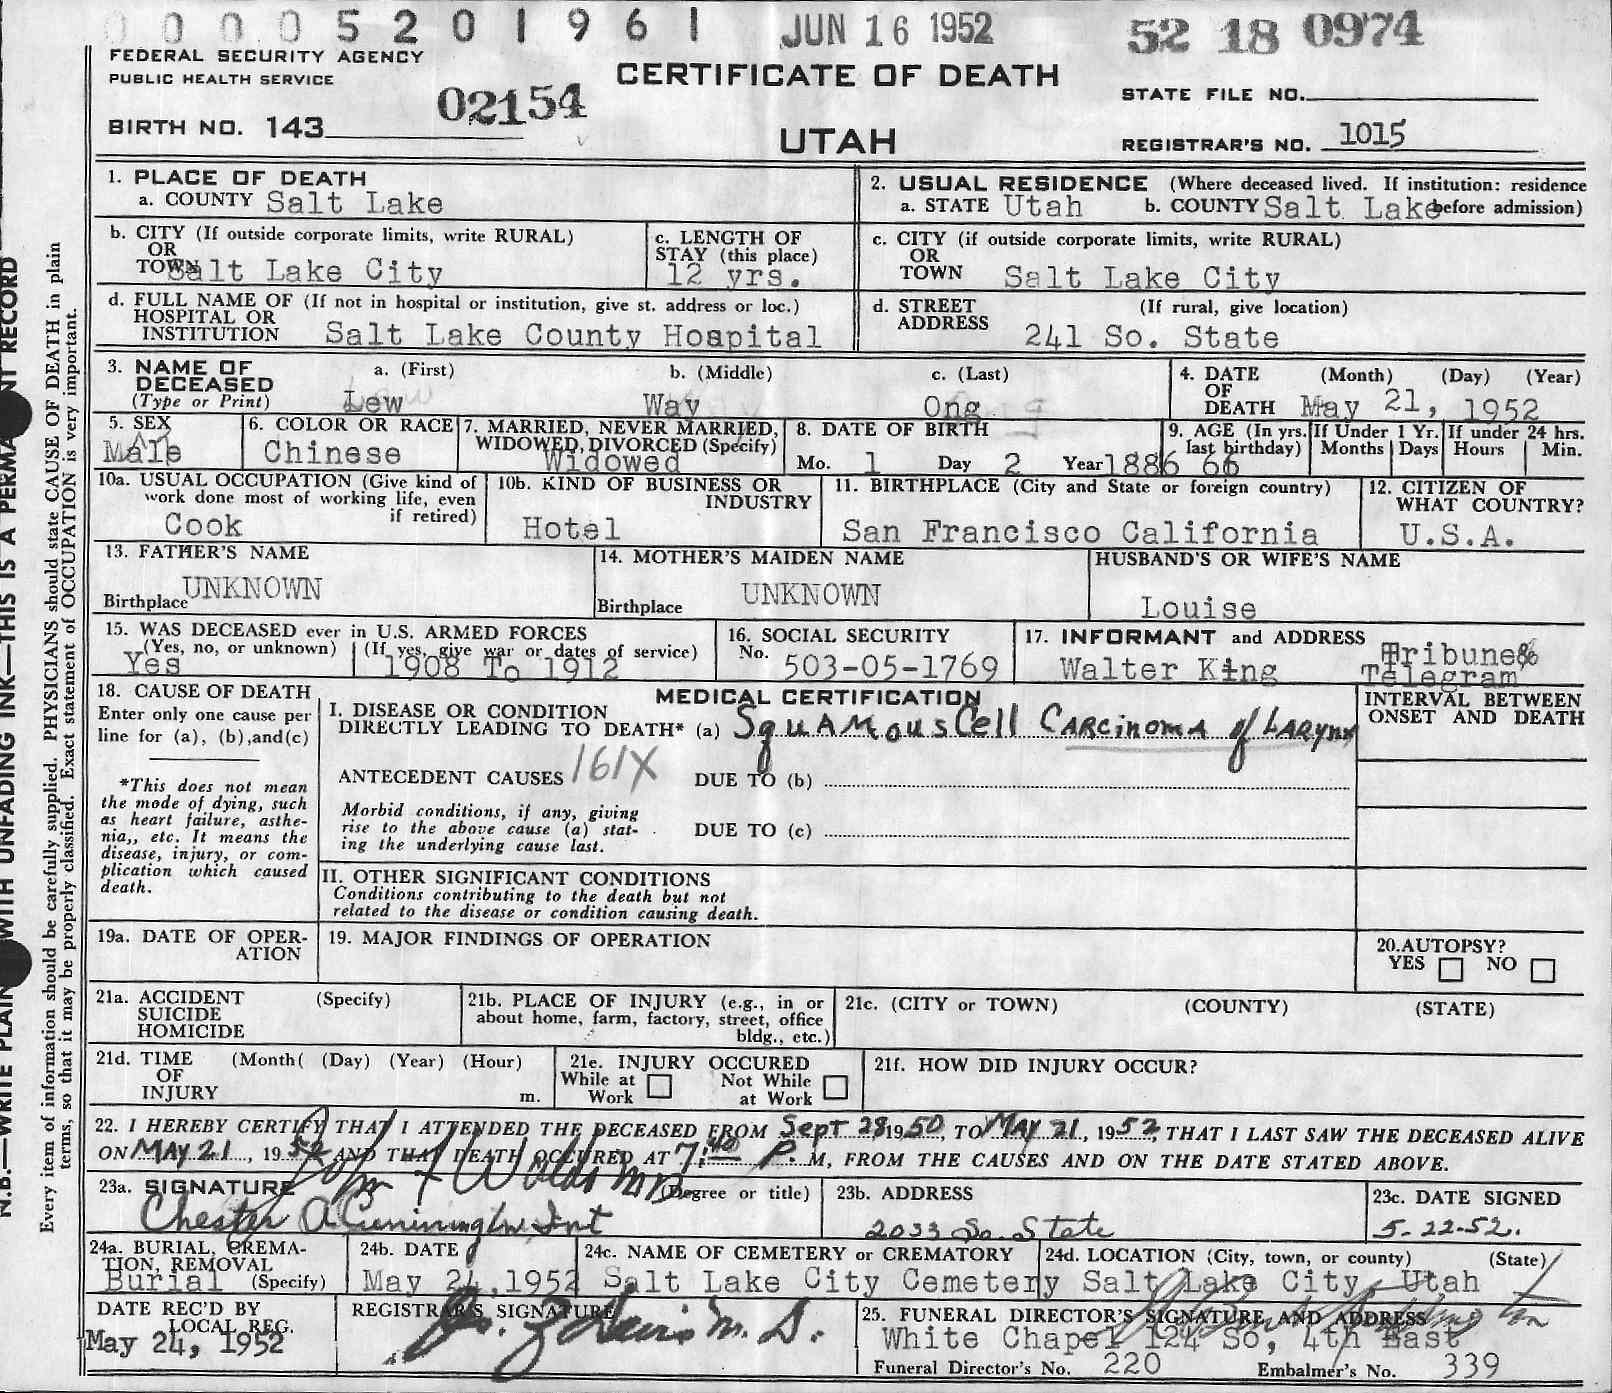 0 0 0 0 5 2 0 1 9 6 1 JUN 16 1952 52 18 0974
FEDERAL SECURITY AGENCY
PUBLIC HEALTH SERVICE
CERTIFICATE OF DEATH
STATE FILE NO.
02154
BIRTH NO. 143
UTAH
REGISTRAR'S NO. 1015
1. PLACE OF DEATH
a. COUNTY Salt Lake
2. USUAL RESIDENCE (Where deceased lived. If institution: residence
a. STATE Utah b. COUNTY Salt Lake before admission)
b. CITY (If outside corporate limits, write RURAL)
OR
TOWN Salt Lake City
c. LENGTH OF
STAY (this place)
12 yrs.
c. CITY (if outside corporate limits, write RURAL)
OR
TOWN Salt Lake City
d. FULL NAME OF (If not in hospital or institution, give st. address or loc.)
HOSPITAL OR
INSTITUTION Salt Lake County Hospital
d. STREET (If rural, give location)
ADDRESS 241 So. State
3. NAME OF
DECEASED
(Type or Print)
a. (First) b. (Middle) c. (Last)
Lew Way Ong
4. DATE (Month) (Day) (Year)
OF
DEATH May 21, 1952
5. SEX
Male
6. COLOR OR RACE
Chinese
7. MARRIED, NEVER MARRIED,
WIDOWED, DIVORCED (Specify)
Widowed
8. DATE OF BIRTH
Mo. 1 Day 2 Year 1886
9. AGE (In yrs.
last birthday)
66
If Under 1 Yr.
Months Days
If under 24 hrs.
Hours Min.
10a. USUAL OCCUPATION (Give kind of
work done most of working life, even
if retired)
Cook
10b. KIND OF BUSINESS OR
INDUSTRY
Hotel
11. BIRTHPLACE (City and State or foreign country)
San Francisco California
12. CITIZEN OF
WHAT COUNTRY?
U.S.A.
13. FATHER'S NAME
UNKNOWN
Birthplace
14. MOTHER'S MAIDEN NAME
UNKNOWN
Birthplace
HUSBAND'S OR WIFE'S NAME
Louise
15. WAS DECEASED ever in U.S. ARMED FORCES
(Yes, no, or unknown) (If yes, give war or dates of service)
Yes 1908 To 1912
16. SOCIAL SECURITY
No. 503-05-1769
17. INFORMANT and ADDRESS
Walter King Tribune&
Telegram
18. CAUSE OF DEATH
Enter only one cause per
line for (a), (b),and(c)
*This does not mean
the mode of dying, such
as heart failure, asthe-
nia,, etc. It means the
disease, injury, or com-
plication which caused
death.
MEDICAL CERTIFICATION
I. DISEASE OR CONDITION
DIRECTLY LEADING TO DEATH* (a) Squamous Cell Carcinoma of Larynx
ANTECEDENT CAUSES 161X DUE TO (b)
Morbid conditions, if any, giving
rise to the above cause (a) stat-
ing the underlying cause last.
DUE TO (c)
II. OTHER SIGNIFICANT CONDITIONS
Conditions contributing to the death but not
related to the disease or condition causing death.
INTERVAL BETWEEN
ONSET AND DEATH
19a. DATE OF OPER-
ATION
19. MAJOR FINDINGS OF OPERATION
20.AUTOPSY?
YES NO
21a. ACCIDENT (Specify)
SUICIDE
HOMICIDE
21b. PLACE OF INJURY (e.g., in or
about home, farm, factory, street, office
bldg., etc.)
21c. (CITY or TOWN) (COUNTY) (STATE)
21d. TIME (Month( (Day) (Year) (Hour)
OF
INJURY m.
21e. INJURY OCCURED
While at Work
Not While at Work
21f. HOW DID INJURY OCCUR?
22. I HEREBY CERTIFY THAT I ATTENDED THE DECEASED FROM Sept 28 1950, TO May 21, 1952, THAT I LAST SAW THE DECEASED ALIVE
ON May 21, 1952 AND THAT DEATH OCCURED AT 7:40 P. M, FROM THE CAUSES AND ON THE DATE STATED ABOVE.
23a. SIGNATURE (Degree or title)
Chester A
23b. ADDRESS
2033 So. State
23c. DATE SIGNED
5-22-52.
24a. BURIAL, CREMA-
TION, REMOVAL
Burial (Specify)
24b. DATE
May 24, 1952
24c. NAME OF CEMETERY or CREMATORY
Salt Lake City Cemetery
24d. LOCATION (City, town, or county) (State)
Salt Lake City, Utah
DATE REC'D BY
LOCAL REG.
May 24, 1952
REGISTRAR'S SIGNATURE
M. D.
25. FUNERAL DIRECTOR'S SIGNATURE AND ADDRESS
White Chapel 124 So, 4th East
Funeral Director's No. 220 Embalmer's No. 339
N.B.—WRITE PLAIN WITH UNFADING INK—THIS IS A PERMA NT RECORD
Every item of information should be carefully supplied. PHYSICIANS should state CAUSE OF DEATH in plain
terms, so that it may be properly classified. Exact statement of OCCUPATION is very important.